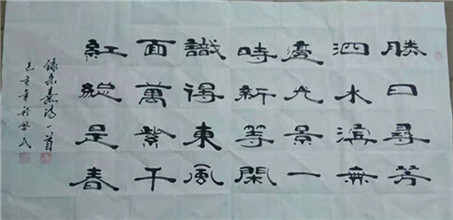 勝日尋芳
泗水濱無
邊光景一
時新等閑
識得東風
面萬紫千
紅總是春
録朱熹詩一首
己亥年